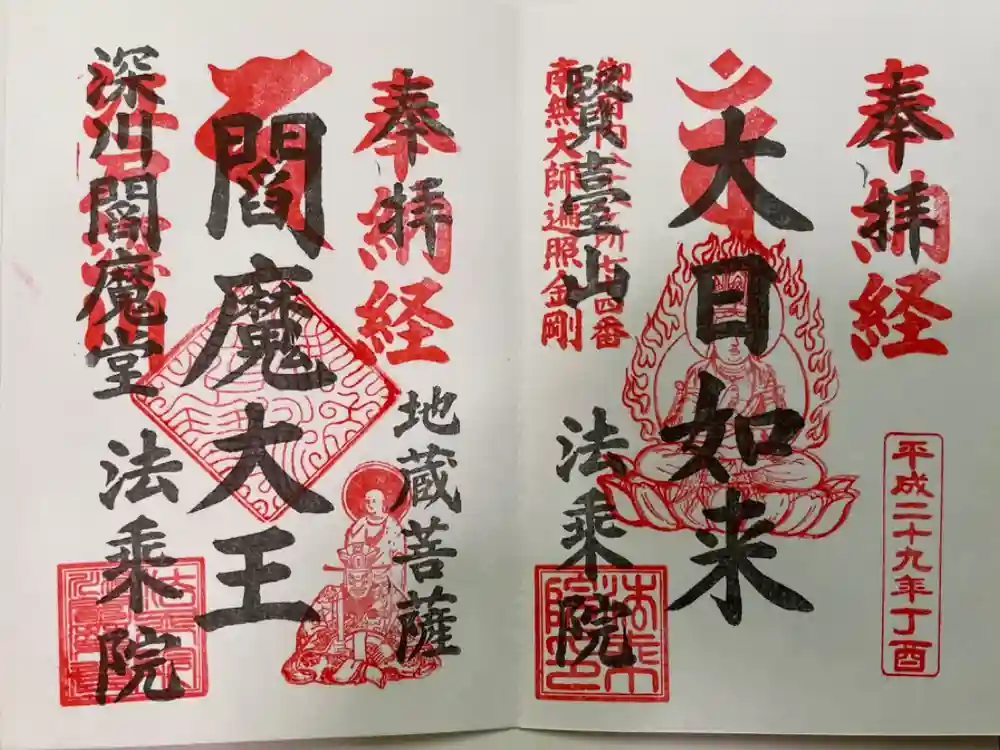 奉納経
拝
平成二十九年丁酉
大日如来
賢臺山
法乗院
御府内八十八ヶ所七十四番
南無大師遍照金剛
奉納経
拝
地蔵菩薩
閻魔大王
深川閻魔堂
法乗院